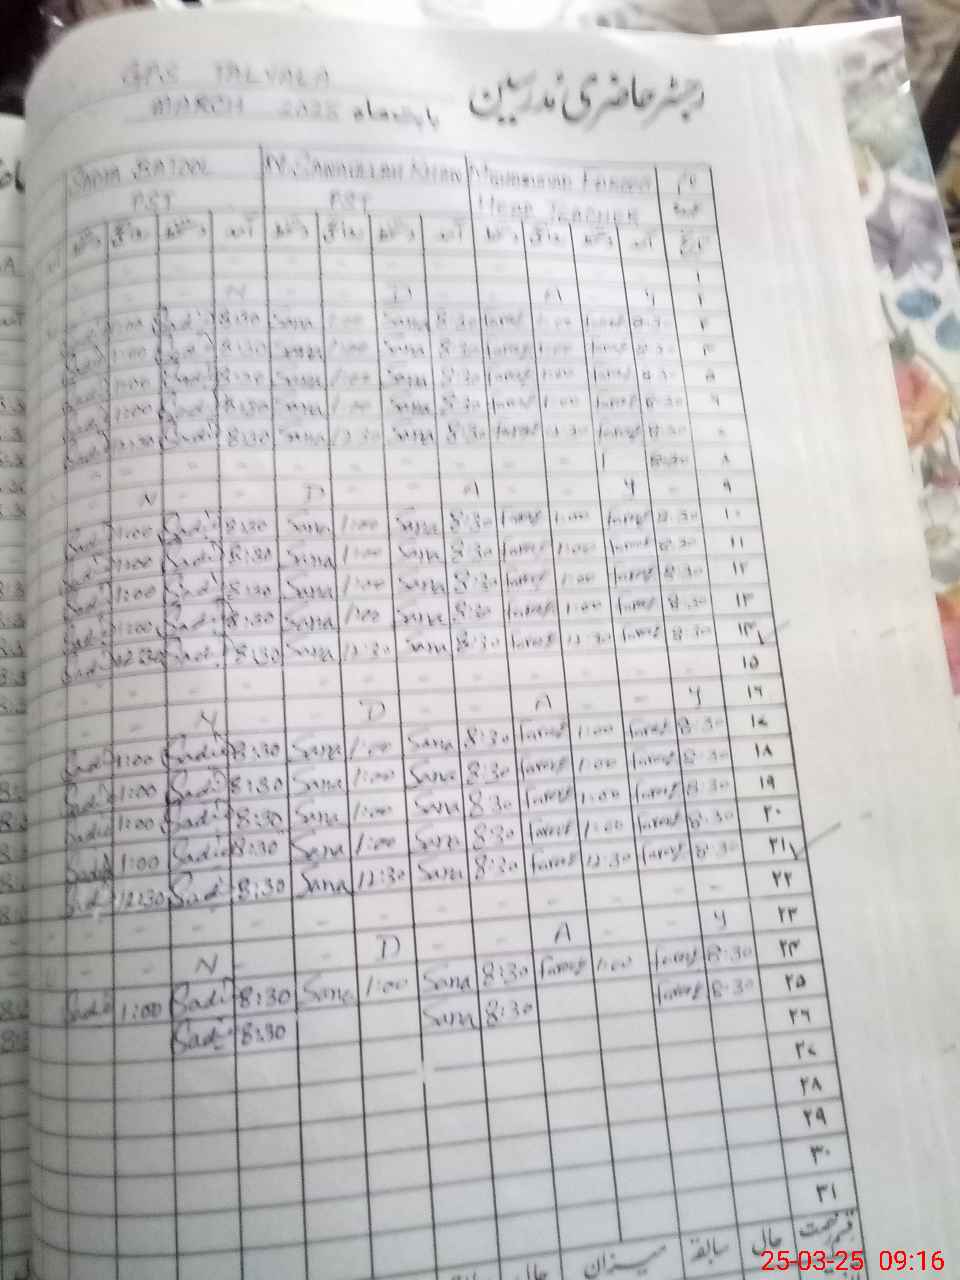 GPS TALVALA
رجسٹر حاضری مدرسین
بابت ماہ MARCH 2025
SADIA BATOOL M. SANAULLAH KHAN FAROOQ نام
PST PST HEAD TEACHER عہدہ
دستخط روانگی دستخط آمد دستخط روانگی دستخط آمد دستخط روانگی دستخط آمد تاریخ
- - - - - - - - - - - - ١
N - D - A - Y ٢
Sadi 1:00 Sadi 8:30 Sana 1:00 Sana 8:30 Farooq 1:00 Farooq 8:30 ٣
Sadi 1:00 Sadi 8:30 Sana 1:00 Sana 8:30 Farooq 1:00 Farooq 8:30 ۴
Sadi 1:00 Sadi 8:30 Sana 1:00 Sana 8:30 Farooq 1:00 Farooq 8:30 ۵
Sadi 1:00 Sadi 8:30 Sana 1:00 Sana 8:30 Farooq 1:00 Farooq 8:30 ۶
Sadi 12:30 Sadi 8:30 Sana 12:30 Sana 8:30 Farooq 12:30 Farooq 8:30 ۷
- - - - - - - - - - 8:30 ۸
N - - D - - A - - Y - ۹
Sadi 1:00 Sadi 8:30 Sana 1:00 Sana 8:30 Farooq 1:00 Farooq 8:30 ۱۰
Sadi 1:00 Sadi 8:30 Sana 1:00 Sana 8:30 Farooq 1:00 Farooq 8:30 ۱۱
Sadi 1:00 Sadi 8:30 Sana 1:00 Sana 8:30 Farooq 1:00 Farooq 8:30 ۱۲
Sadi 1:00 Sadi 8:30 Sana 1:00 Sana 8:30 Farooq 1:00 Farooq 8:30 ۱۳
Sadi 12:30 Sadi 8:30 Sana 12:30 Sana 8:30 Farooq 12:30 Farooq 8:30 ۱۴
- - - - - - - - - - - - ۱۵
N - - D - - A - - Y ۱۶
Sadi 1:00 Sadi 8:30 Sana 1:00 Sana 8:30 Farooq 1:00 Farooq 8:30 ۱۷
Sadi 1:00 Sadi 8:30 Sana 1:00 Sana 8:30 Farooq 1:00 Farooq 8:30 ۱۸
Sadi 1:00 Sadi 8:30 Sana 1:00 Sana 8:30 Farooq 1:00 Farooq 8:30 ۱۹
Sadi 1:00 Sadi 8:30 Sana 1:00 Sana 8:30 Farooq 1:00 Farooq 8:30 ۲۰
Sadi 12:30 Sadi 8:30 Sana 12:30 Sana 8:30 Farooq 12:30 Farooq 8:30 ۲۱
- - - - - - - - - - - - ۲۲
N - - D - - A - - Y ۲۳
Sadi 1:00 Sadi 8:30 Sana 1:00 Sana 8:30 Farooq 1:00 Farooq 8:30 ۲۴
Sadi 8:30 Sana 8:30 Farooq 8:30 ۲۵
۲۶
۲۷
۲۸
۲۹
۳۰
۳۱
قسم رخصت حال سابقہ میزان حال
25-03-25 09:16